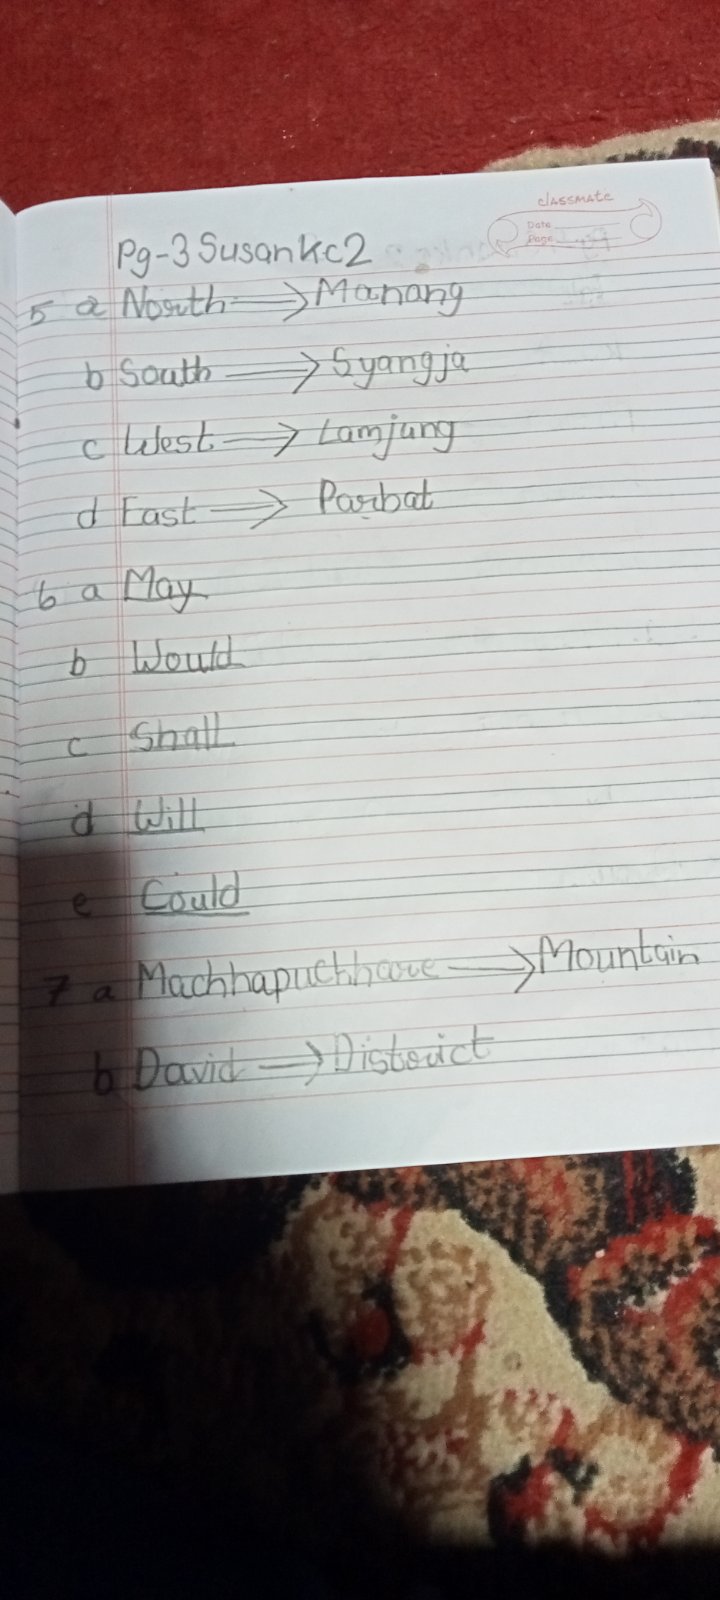 classmate
Date
Page
Pg-3 Susan Kc2
5 a North → Manang
b South → Syangja
c West → Lamjung
d East → Parbat
6 a May
b Would
c Shall
d Will
e Could
7 a Machhapuchhare → Mountain
b David → District